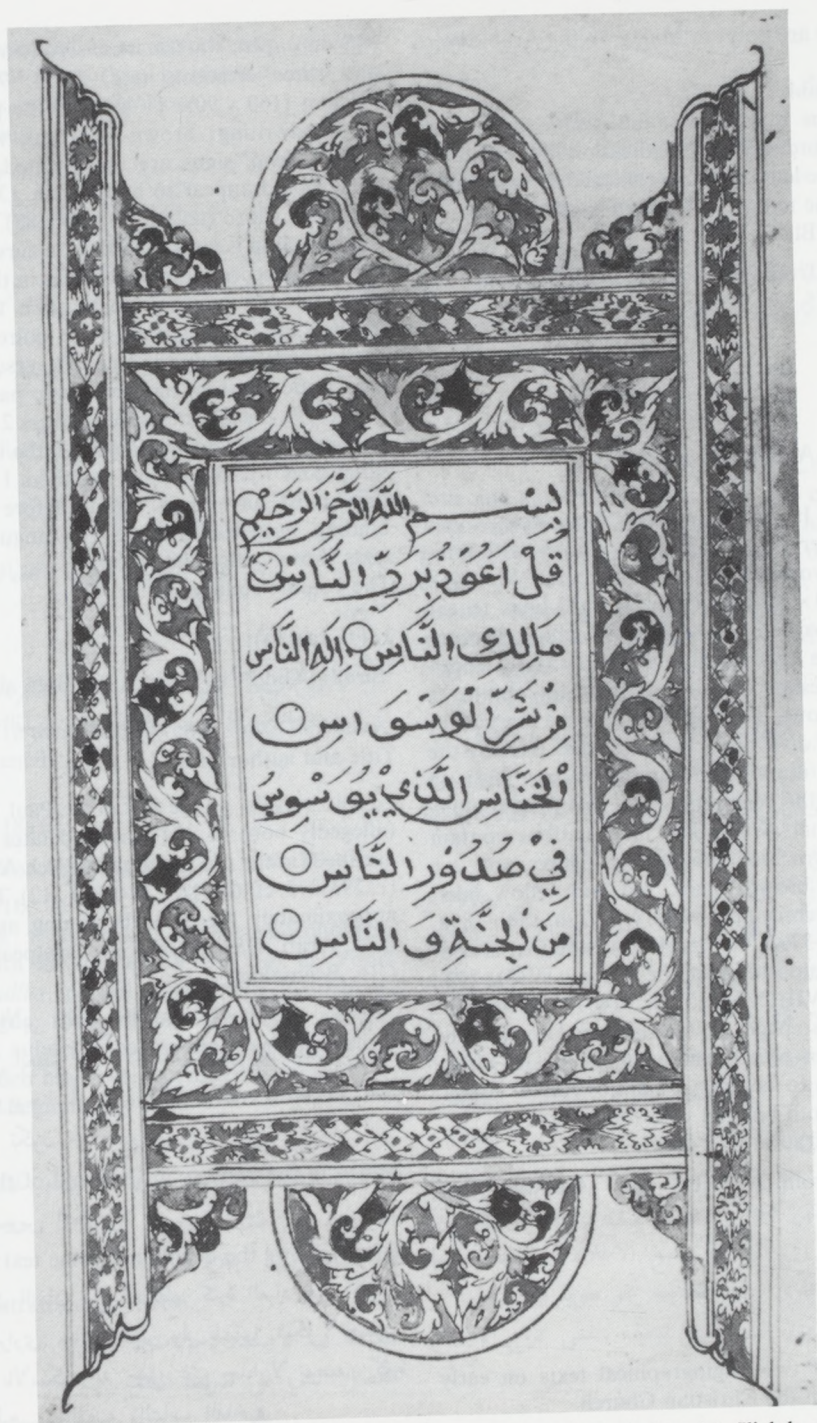 بِسْمِ اللّٰهِ الرَّحْمٰنِ الرَّحِيْمِ ○
قُلْ اَعُوْذُ بِرَبِّ النَّاسِ ○
مَالِكِ النَّاسِ ○ اِلٰهِ النَّاسِ
مِنْ شَرِّ الْوَسْوَاسِ ○
الْخَنَّاسِ الَّذِيْ يُوَسْوِسُ
فِيْ صُدُوْرِ النَّاسِ ○
مِنَ الْجِنَّةِ وَ النَّاسِ ○